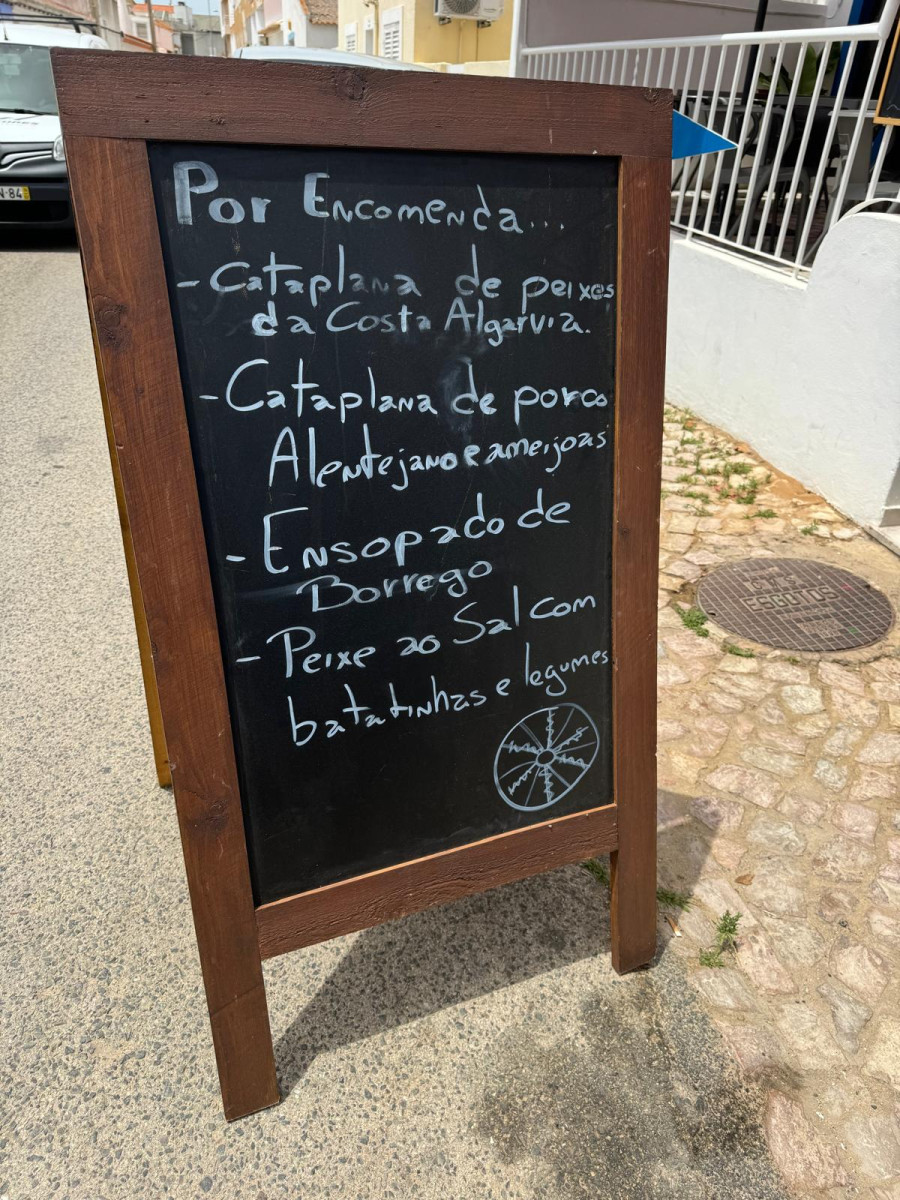 Por Encomenda...
- Cataplana de peixes
da Costa Algarvia.
- Cataplana de porco
Alentejano e ameijoas
- Ensopado de
Borrego
- Peixe ao Sal com
batatinhas e legumes
ESGOTOS